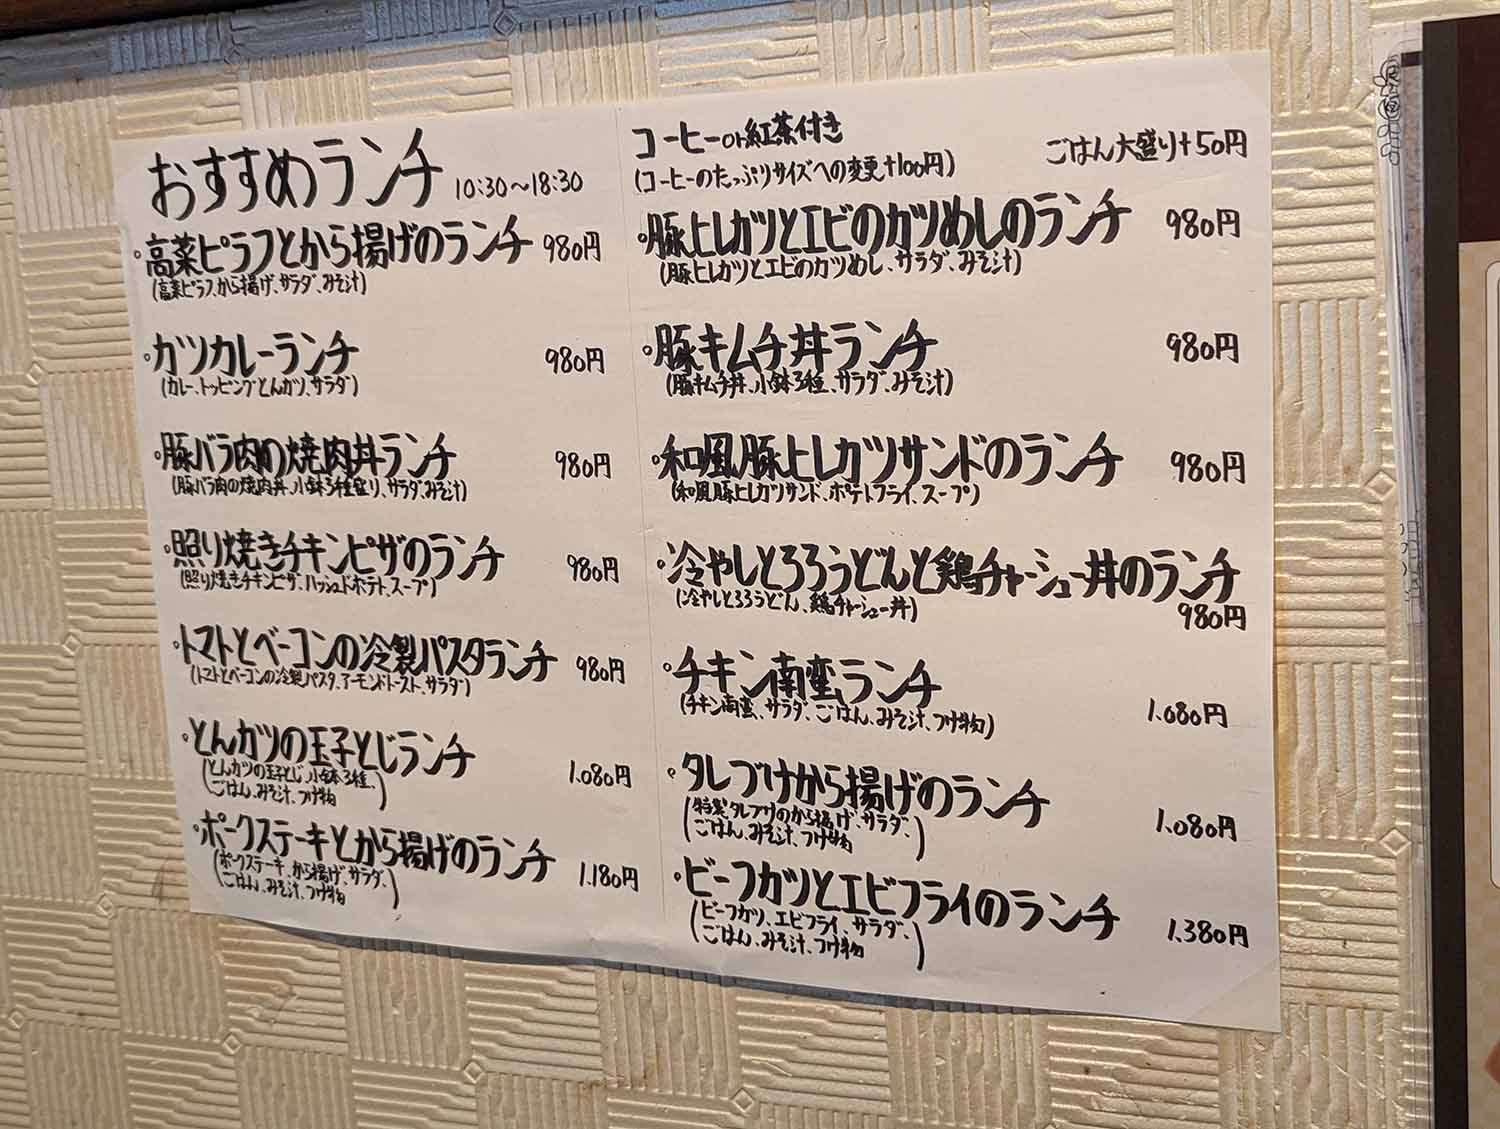 おすすめランチ 10:30〜18:30
・高菜ピラフとから揚げのランチ 980円
(高菜ピラフ、から揚げ、サラダ、みそ汁)
・カツカレーランチ 980円
(カレー、トッピングとんカツ、サラダ)
・豚バラ肉の焼肉丼ランチ 980円
(豚バラ肉の焼肉丼、小鉢3種盛り、サラダ、みそ汁)
・照り焼きチキンピザのランチ 980円
(照り焼きチキンピザ、ハッシュドポテト、スープ)
・トマトとベーコンの冷製パスタランチ 980円
(トマトとベーコンの冷製パスタ、アーモンドトースト、サラダ)
・とんカツの玉子とじランチ 1.080円
(とんカツの玉子とじ、小鉢3種、
ごはん、みそ汁、つけ物)
・ポークステーキとから揚げのランチ 1.180円
(ポークステーキ、から揚げ、サラダ、
ごはん、みそ汁、つけ物)
コーヒーor紅茶付き
(コーヒーのたっぷりサイズへの変更+100円)
ごはん大盛り+50円
・豚ヒレカツとエビのカツめしのランチ 980円
(豚ヒレカツとエビのカツめし、サラダ、みそ汁)
・豚キムチ丼ランチ 980円
(豚キムチ丼、小鉢3種、サラダ、みそ汁)
・和風豚ヒレカツサンドのランチ 980円
(和風豚ヒレカツサンド、ポテトフライ、スープ)
・冷やしとろろうどんと鶏チャーシュー丼のランチ
980円
(冷やしとろろうどん、鶏チャーシュー丼)
・チキン南蛮ランチ 1.080円
(チキン南蛮、サラダ、ごはん、みそ汁、つけ物)
・タレづけから揚げのランチ 1.080円
(特製タレヅケのから揚げ、サラダ、
ごはん、みそ汁、つけ物)
・ビーフカツとエビフライのランチ 1.380円
(ビーフカツ、エビフライ、サラダ、
ごはん、みそ汁、つけ物)